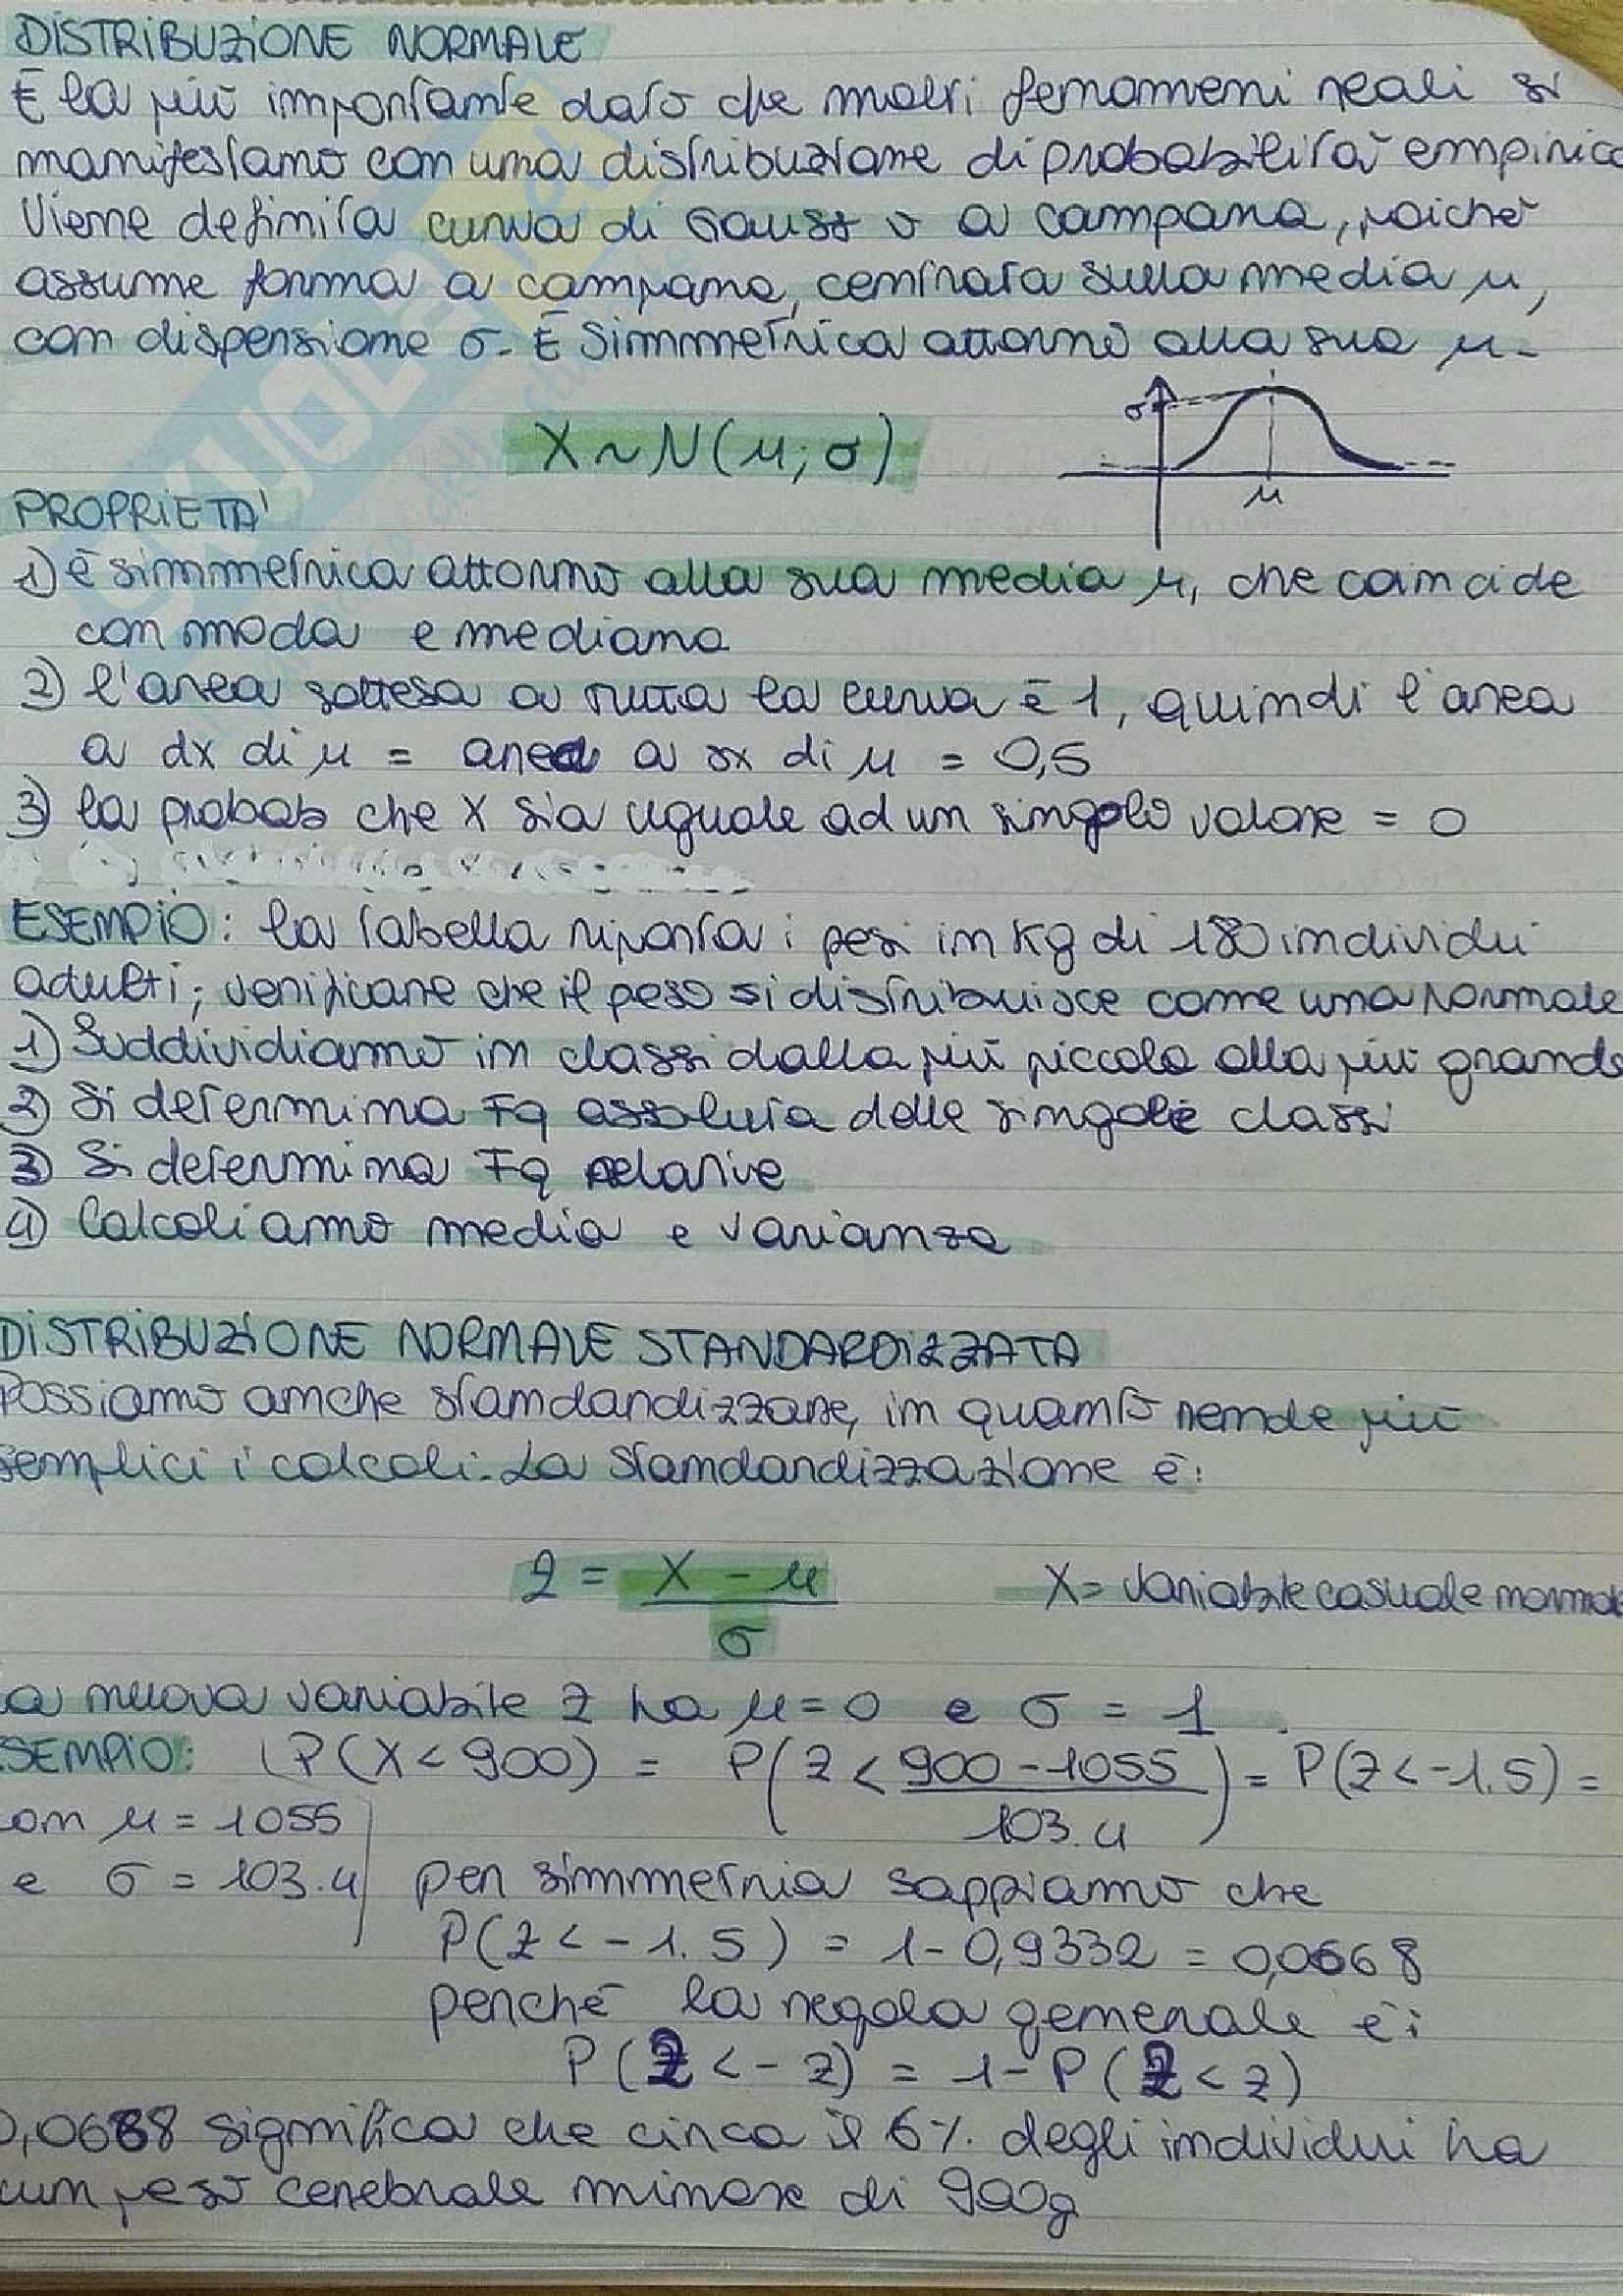 DISTRIBUZIONE NORMALE
È la più importante dato che molti fenomeni reali si
manifestano con una distribuzione di probabilità empirica
Viene definita curva di Gauss o a campana, poiché
assume forma a campana, centrata sulla media μ,
con dispersione σ. È simmetrica attorno alla sua μ.
X~N(μ;σ)
σ
μ
PROPRIETA'
1) è simmetrica attorno alla sua media μ, che coincide
con moda e mediana
2) l'area sottesa a tutta la curva è 1, quindi l'area
a dx di μ = area a sx di μ = 0,5
3) la probab che X sia uguale ad un singolo valore = 0
ESEMPIO: la tabella riporta i pesi in Kg di 180 individui
adulti; verificare che il peso si distribuisce come una normale
1) Suddividiamo in classi dalla più piccola alla più grande
2) Si determina Fq assoluta delle singole classi
3) Si determina Fq relative
4) Calcoliamo media e varianza
DISTRIBUZIONE NORMALE STANDARDIZZATA
Possiamo anche standardizzare, in quanto rende più
semplici i calcoli. La standardizzazione è:
Z = X - μ
σ
X= variabile casuale normale
La nuova variabile Z ha μ=0 e σ = 1.
ESEMPIO: P(X<900) = P(Z < 900-1055 / 103.4) = P(Z<-1.5) =
con μ = 1055
e σ = 103.4
per simmetria sappiamo che
P(Z<-1.5) = 1-0,9332 = 0,0668
perché la regola generale è:
P(Z<-z) = 1-P(Z<z)
0,0668 significa che circa il 6% degli individui ha
un peso cerebrale minore di 900g